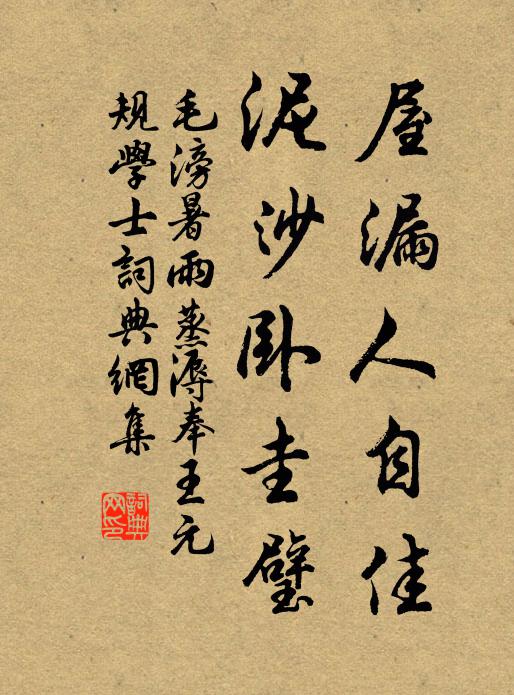 屋漏人自佳
泥沙卧圭璧
毛滂暑雨蒸溽奉王元
規學士詞典網集
詞典網印